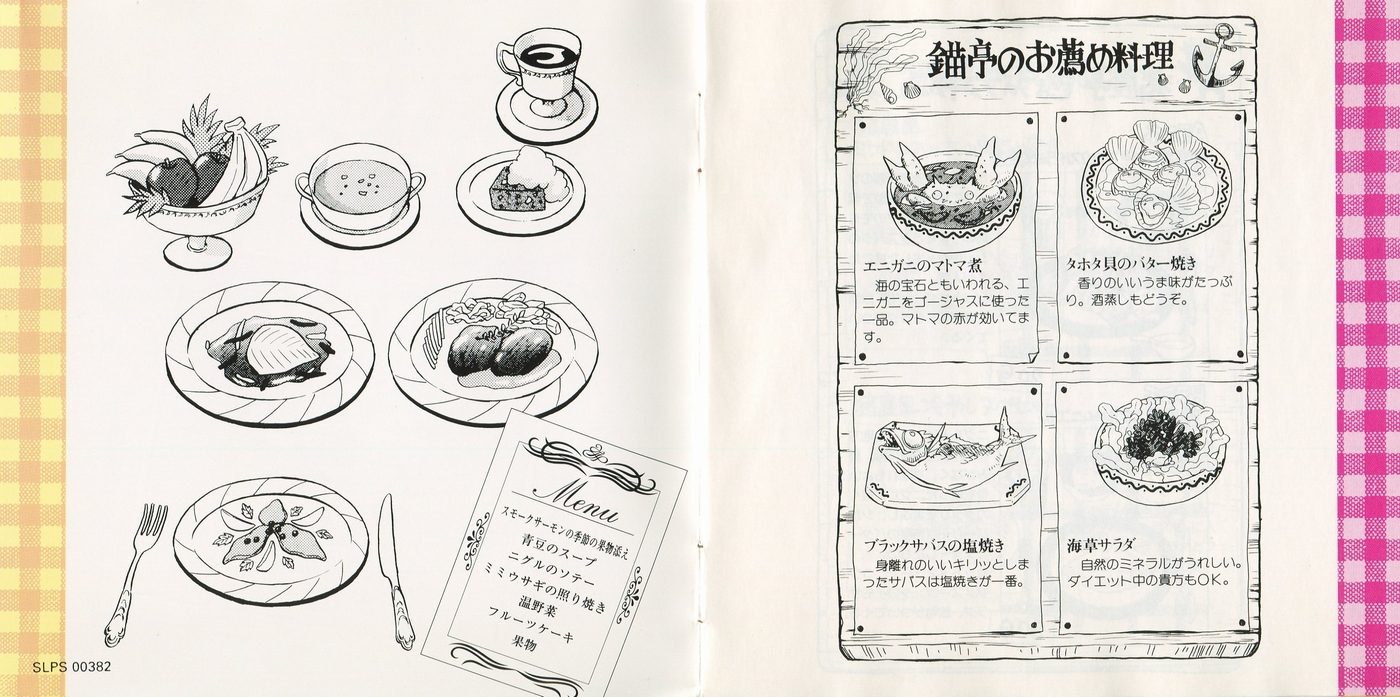 Menu
スモークサーモンの季節の果物添え
青豆のスープ
ニグルのソテー
ミミウサギの照り焼き
温野菜
フルーツケーキ
果物
SLPS 00382
錨亭のお薦め料理
エニガニのマトマ煮
海の宝石ともいわれる、エ
ニガニをゴージャスに使った
一品。マトマの赤が効いてま
す。
タホタ貝のバター焼き
香りのいいうま味がたっぷ
り。酒蒸しもどうぞ。
ブラックサバスの塩焼き
身離れのいいキリッとしま
ったサバスは塩焼きが一番。
海草サラダ
自然のミネラルがうれしい。
ダイエット中の貴方もOK。